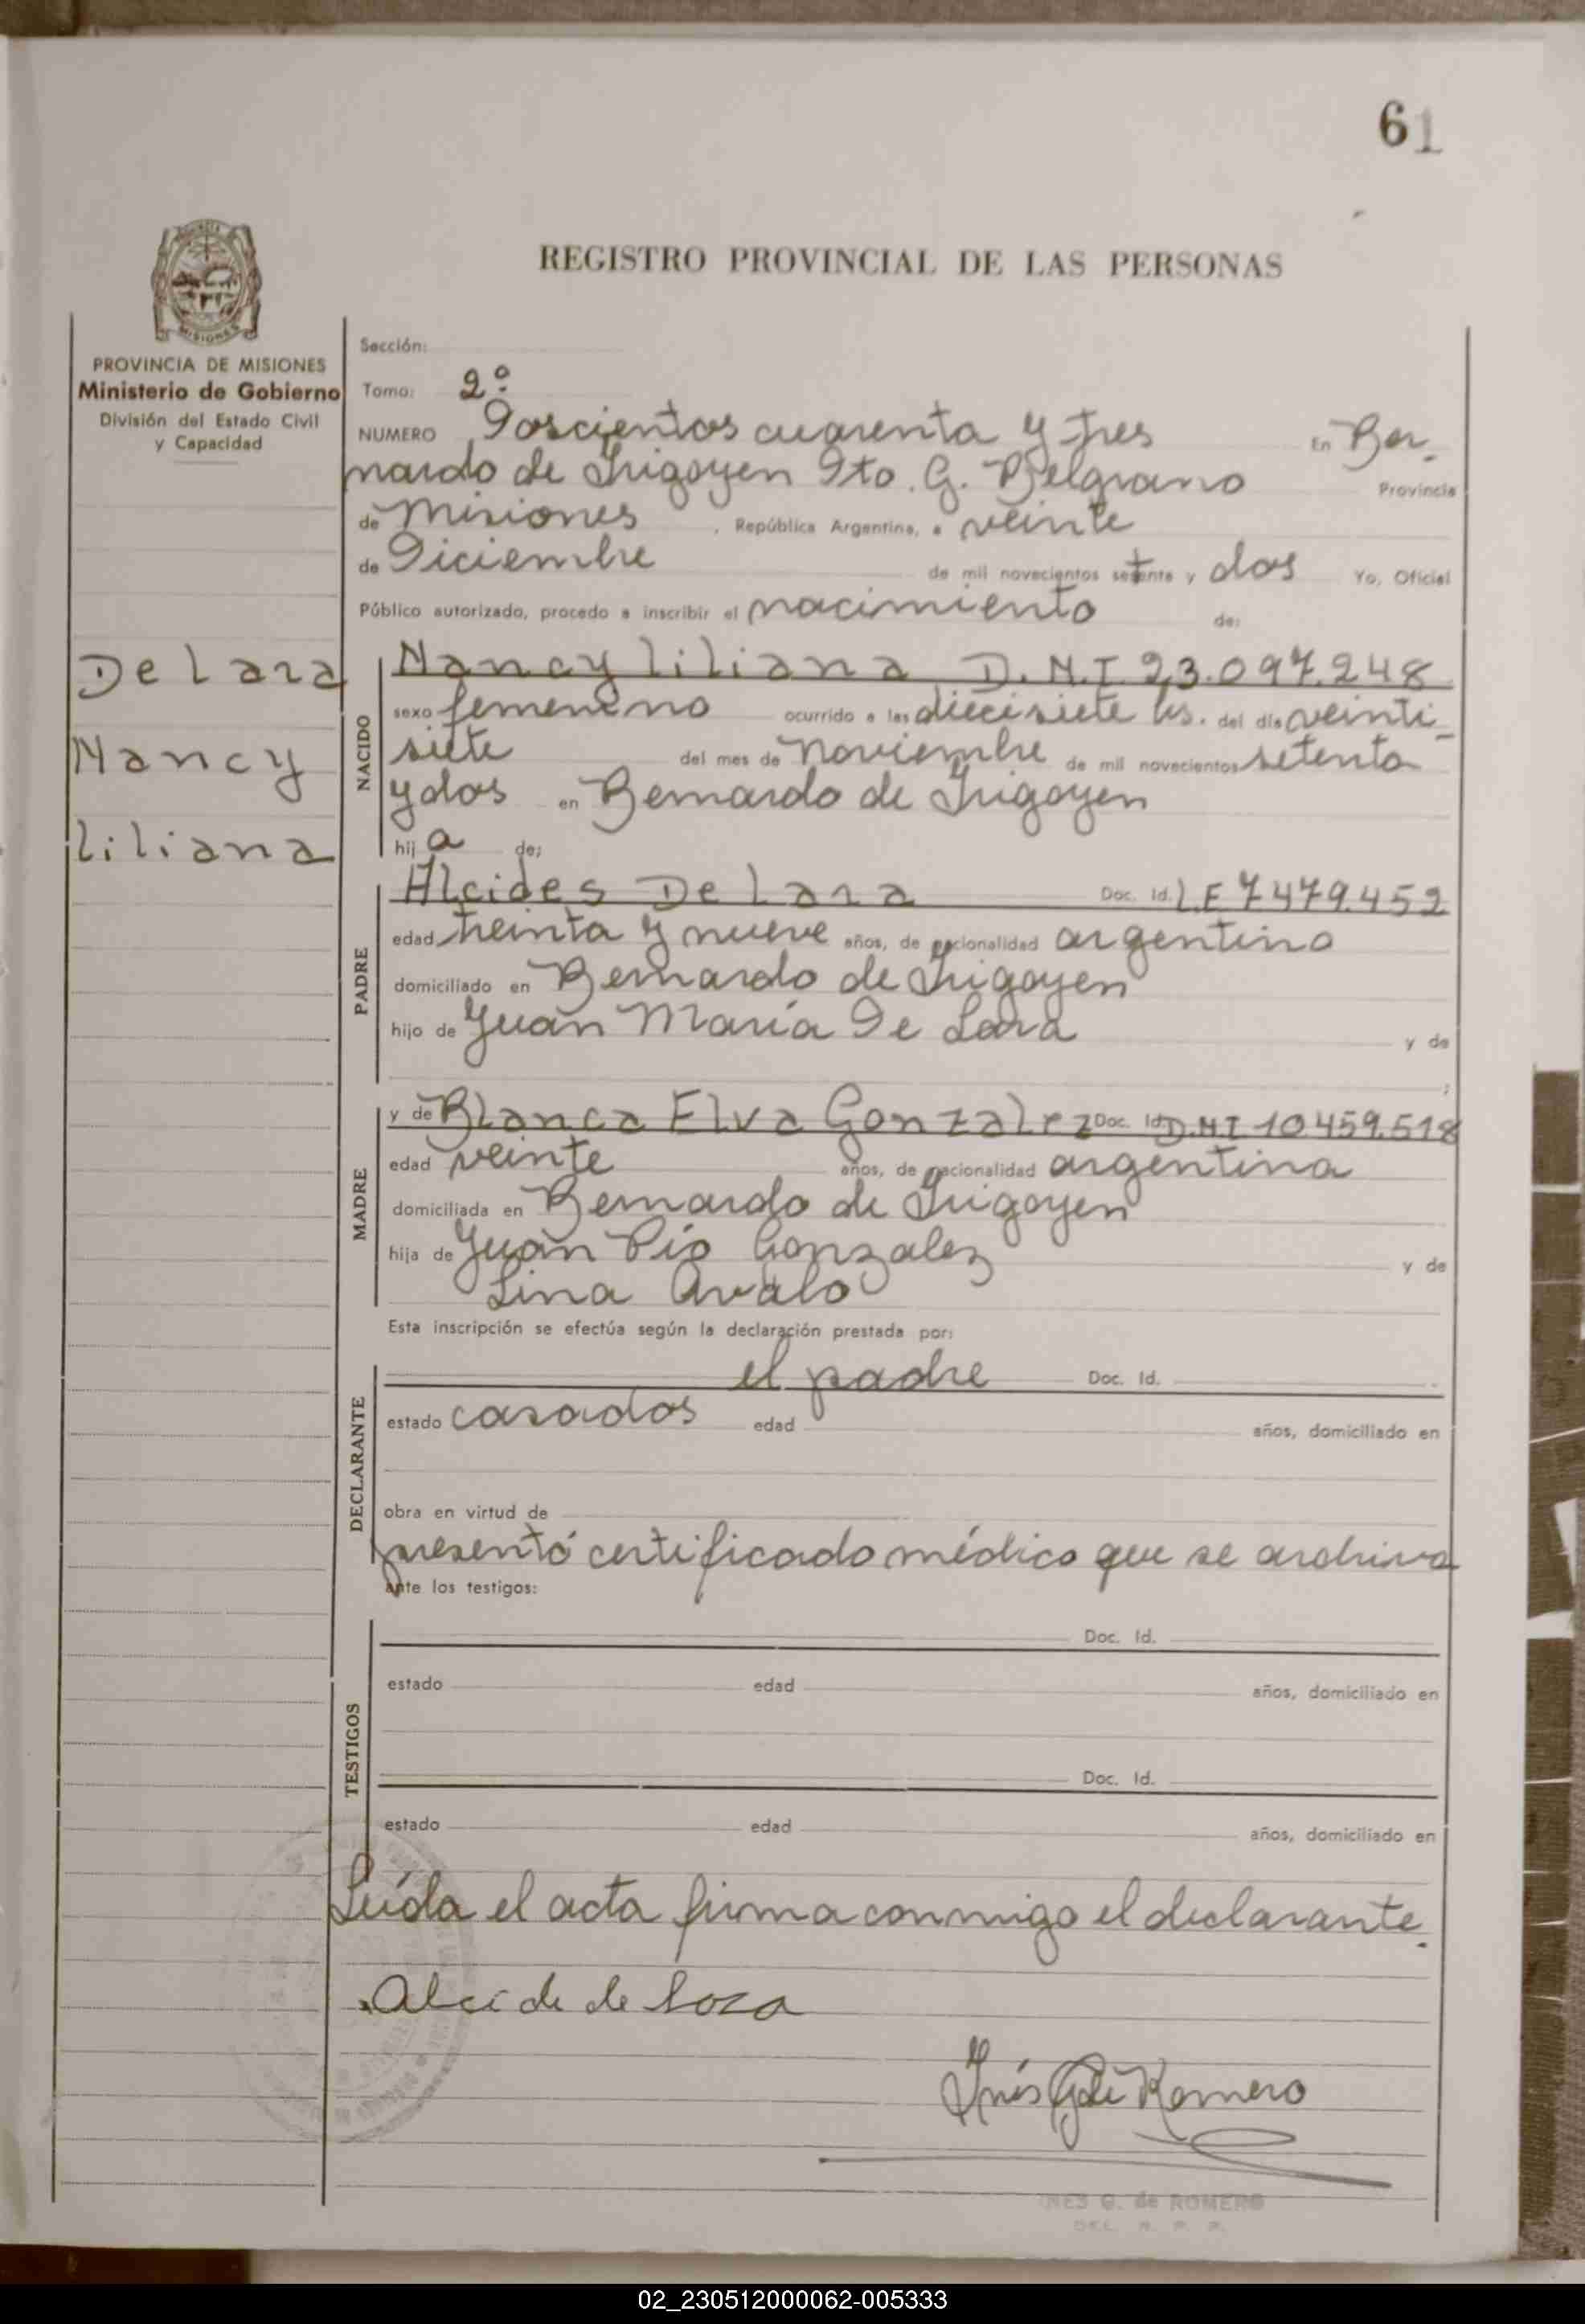 61
REGISTRO PROVINCIAL DE LAS PERSONAS
MISIONES
PROVINCIA DE MISIONES
Ministerio de Gobierno
División del Estado Civil
y Capacidad
De Lara
Nancy
liliana
Sección:
Tomo: 2º
NUMERO Doscientos cuarenta y tres En Ber-
nardo de Irigoyen Dto. G. Belgrano Provincia
de Misiones , República Argentina, a veinte
de Diciembre de mil novecientos setenta y dos Yo, Oficial
Público autorizado, procedo a inscribir el nacimiento de:
NACIDO
Nancy liliana D.N.I 23.097.248
sexo femenino ocurrido a las diecisiete hs. del día veinti-
siete del mes de noviembre de mil novecientos setenta
y dos en Bernardo de Irigoyen
hij a de;
PADRE
Alcides De Lara Doc. Id. L.E 7479.452
edad treinta y nueve años, de nacionalidad argentino
domiciliado en Bernardo de Irigoyen
hijo de Juan María De Lara y de
;
MADRE
y de Blanca Elva Gonzalez Doc. Id. D.N.I 10.459.518
edad veinte años, de nacionalidad argentina
domiciliada en Bernardo de Irigoyen
hija de Juan Pío Gonzalez y de
Lina Avalo
Esta inscripción se efectúa según la declaración prestada por:
DECLARANTE
el padre Doc. Id.
estado casados edad años, domiciliado en
obra en virtud de
presentó certificado médico que se archiva
ante los testigos:
TESTIGOS
Doc. Id.
estado edad años, domiciliado en
Doc. Id.
estado edad años, domiciliado en
Leída el acta firma conmigo el declarante.
Alcide de Lara
Inés G. de Romero
INES G. de ROMERO
DEL. R. P. P.
02_230512000062-005333